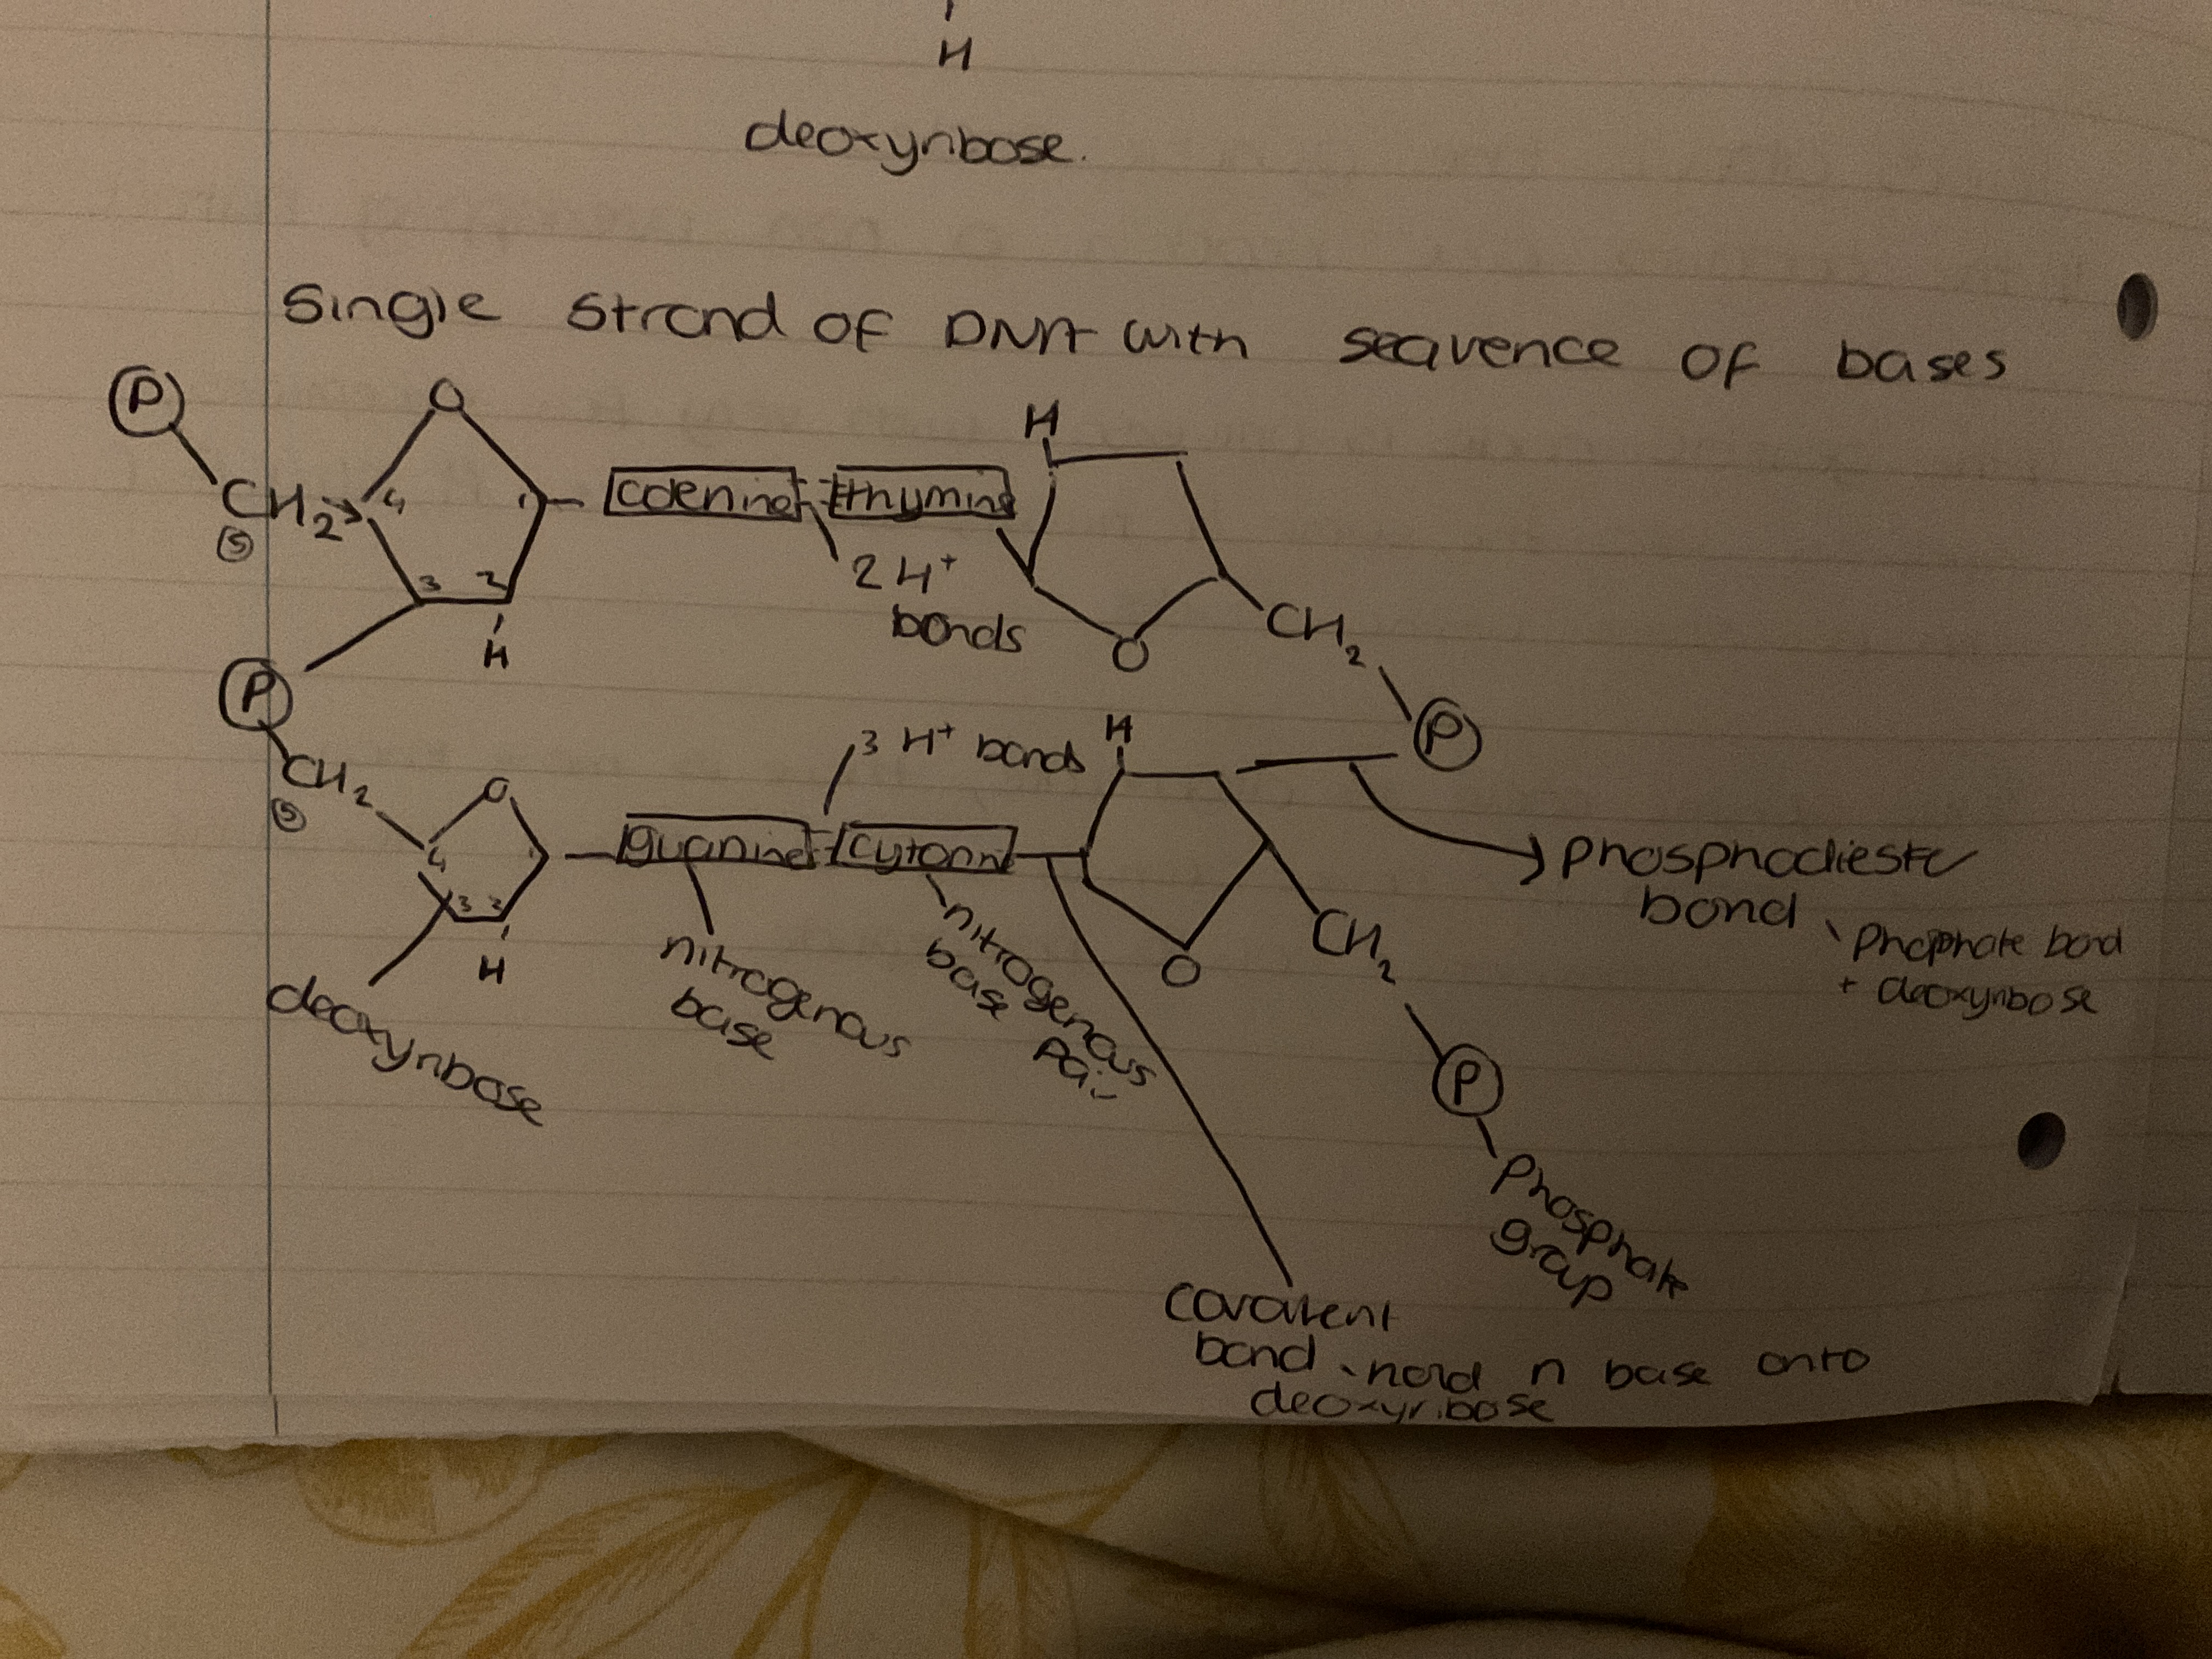 H
deoxyribose.
Single strand of DNA with seqvence of bases
P
O
H
CH2
5
4
1
3
2
H
adenine
thymine
2 H+
bonds
O
CH2
P
P
CH2
5
O
4
1
3
2
H
3 H+ bonds
H
guanine
cytosin
O
CH2
P
phosphodieste
bond
Phosphate bond
+ deoxyribose
deoxyribose
nitrogenous
base
nitrogenous
base
pair
phosphate
group
covalent
bond
n base onto
deoxyribose